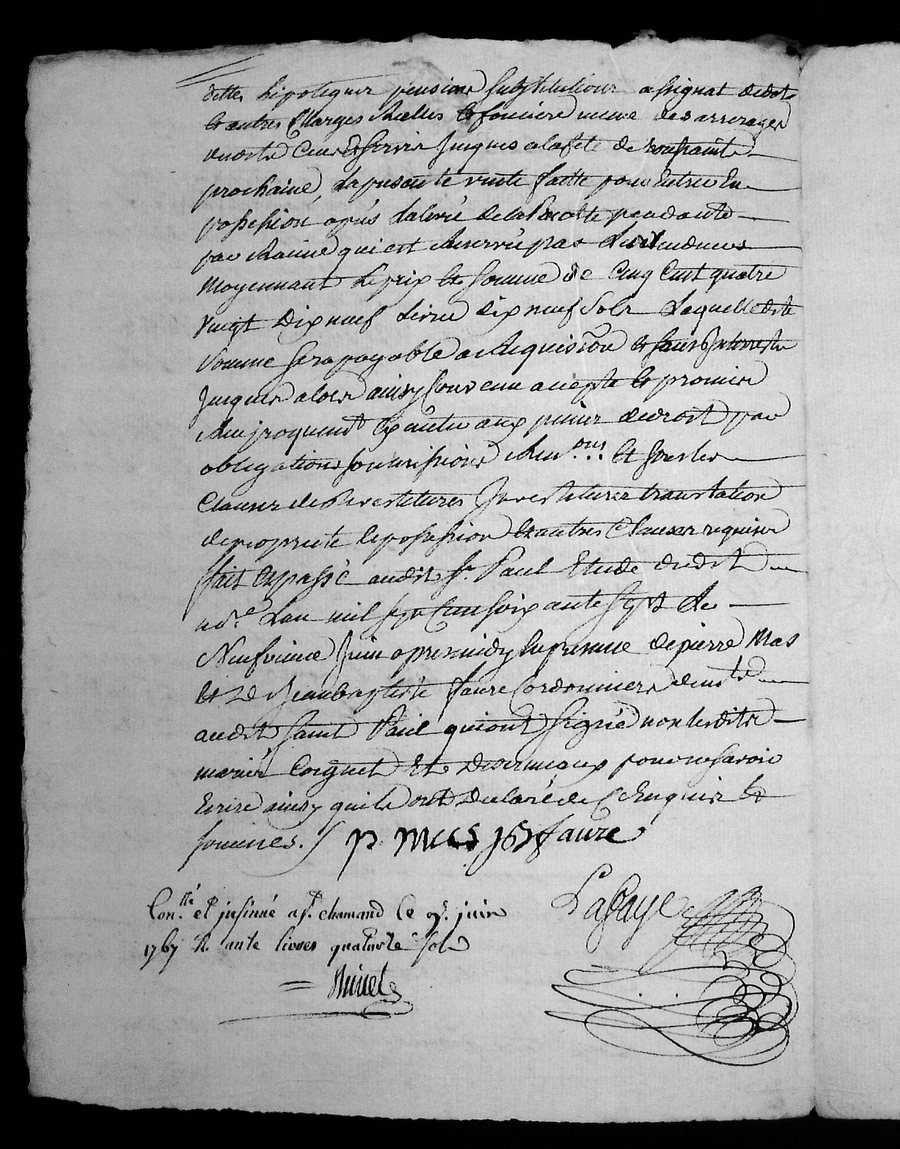 dettes hipoteques pensions substitutions assignat de dot
et autres charges Reelles et fonciere meme des arrerages
de cens et servis jusques a la fete de toussaints
prochaine, la presente vente faitte pour entrer en
possession apres la levé de la Recolte pendante
par Racine qui est Reservé par les vendeurs
moyennant le prix et somme de cinq cent quatre
vingt dix neuf livre dix neuf sols laquelle dite
somme sera payable a Requisition et sans interests
jusques alors ainsy convenu accepté et promis
Reciproquement executer aux peines de droit par
obligations soumissions Ren.ons et sous les
clauses de devestitures investitures translation
de proprieté et possession et autres clauses requises
fait et passé audit St. Paul Etude dudit
no.re L'an mil sept cens soixante sept le
Neufvieme juin apres midy en presence de pierre Mas
et de Jean baptiste faure cordonniers
audit Saint Paul qui ont signé non lesdits
mariés Coignet Et pour ne savoir
Ecrire ainsy qu'ils ont declaré de ce Enquis et
sommes. / p. mas jb faure
Lafaye
Con.llé et insinué a St. chamand le 9e. juin
1767 R livres quatorze sols